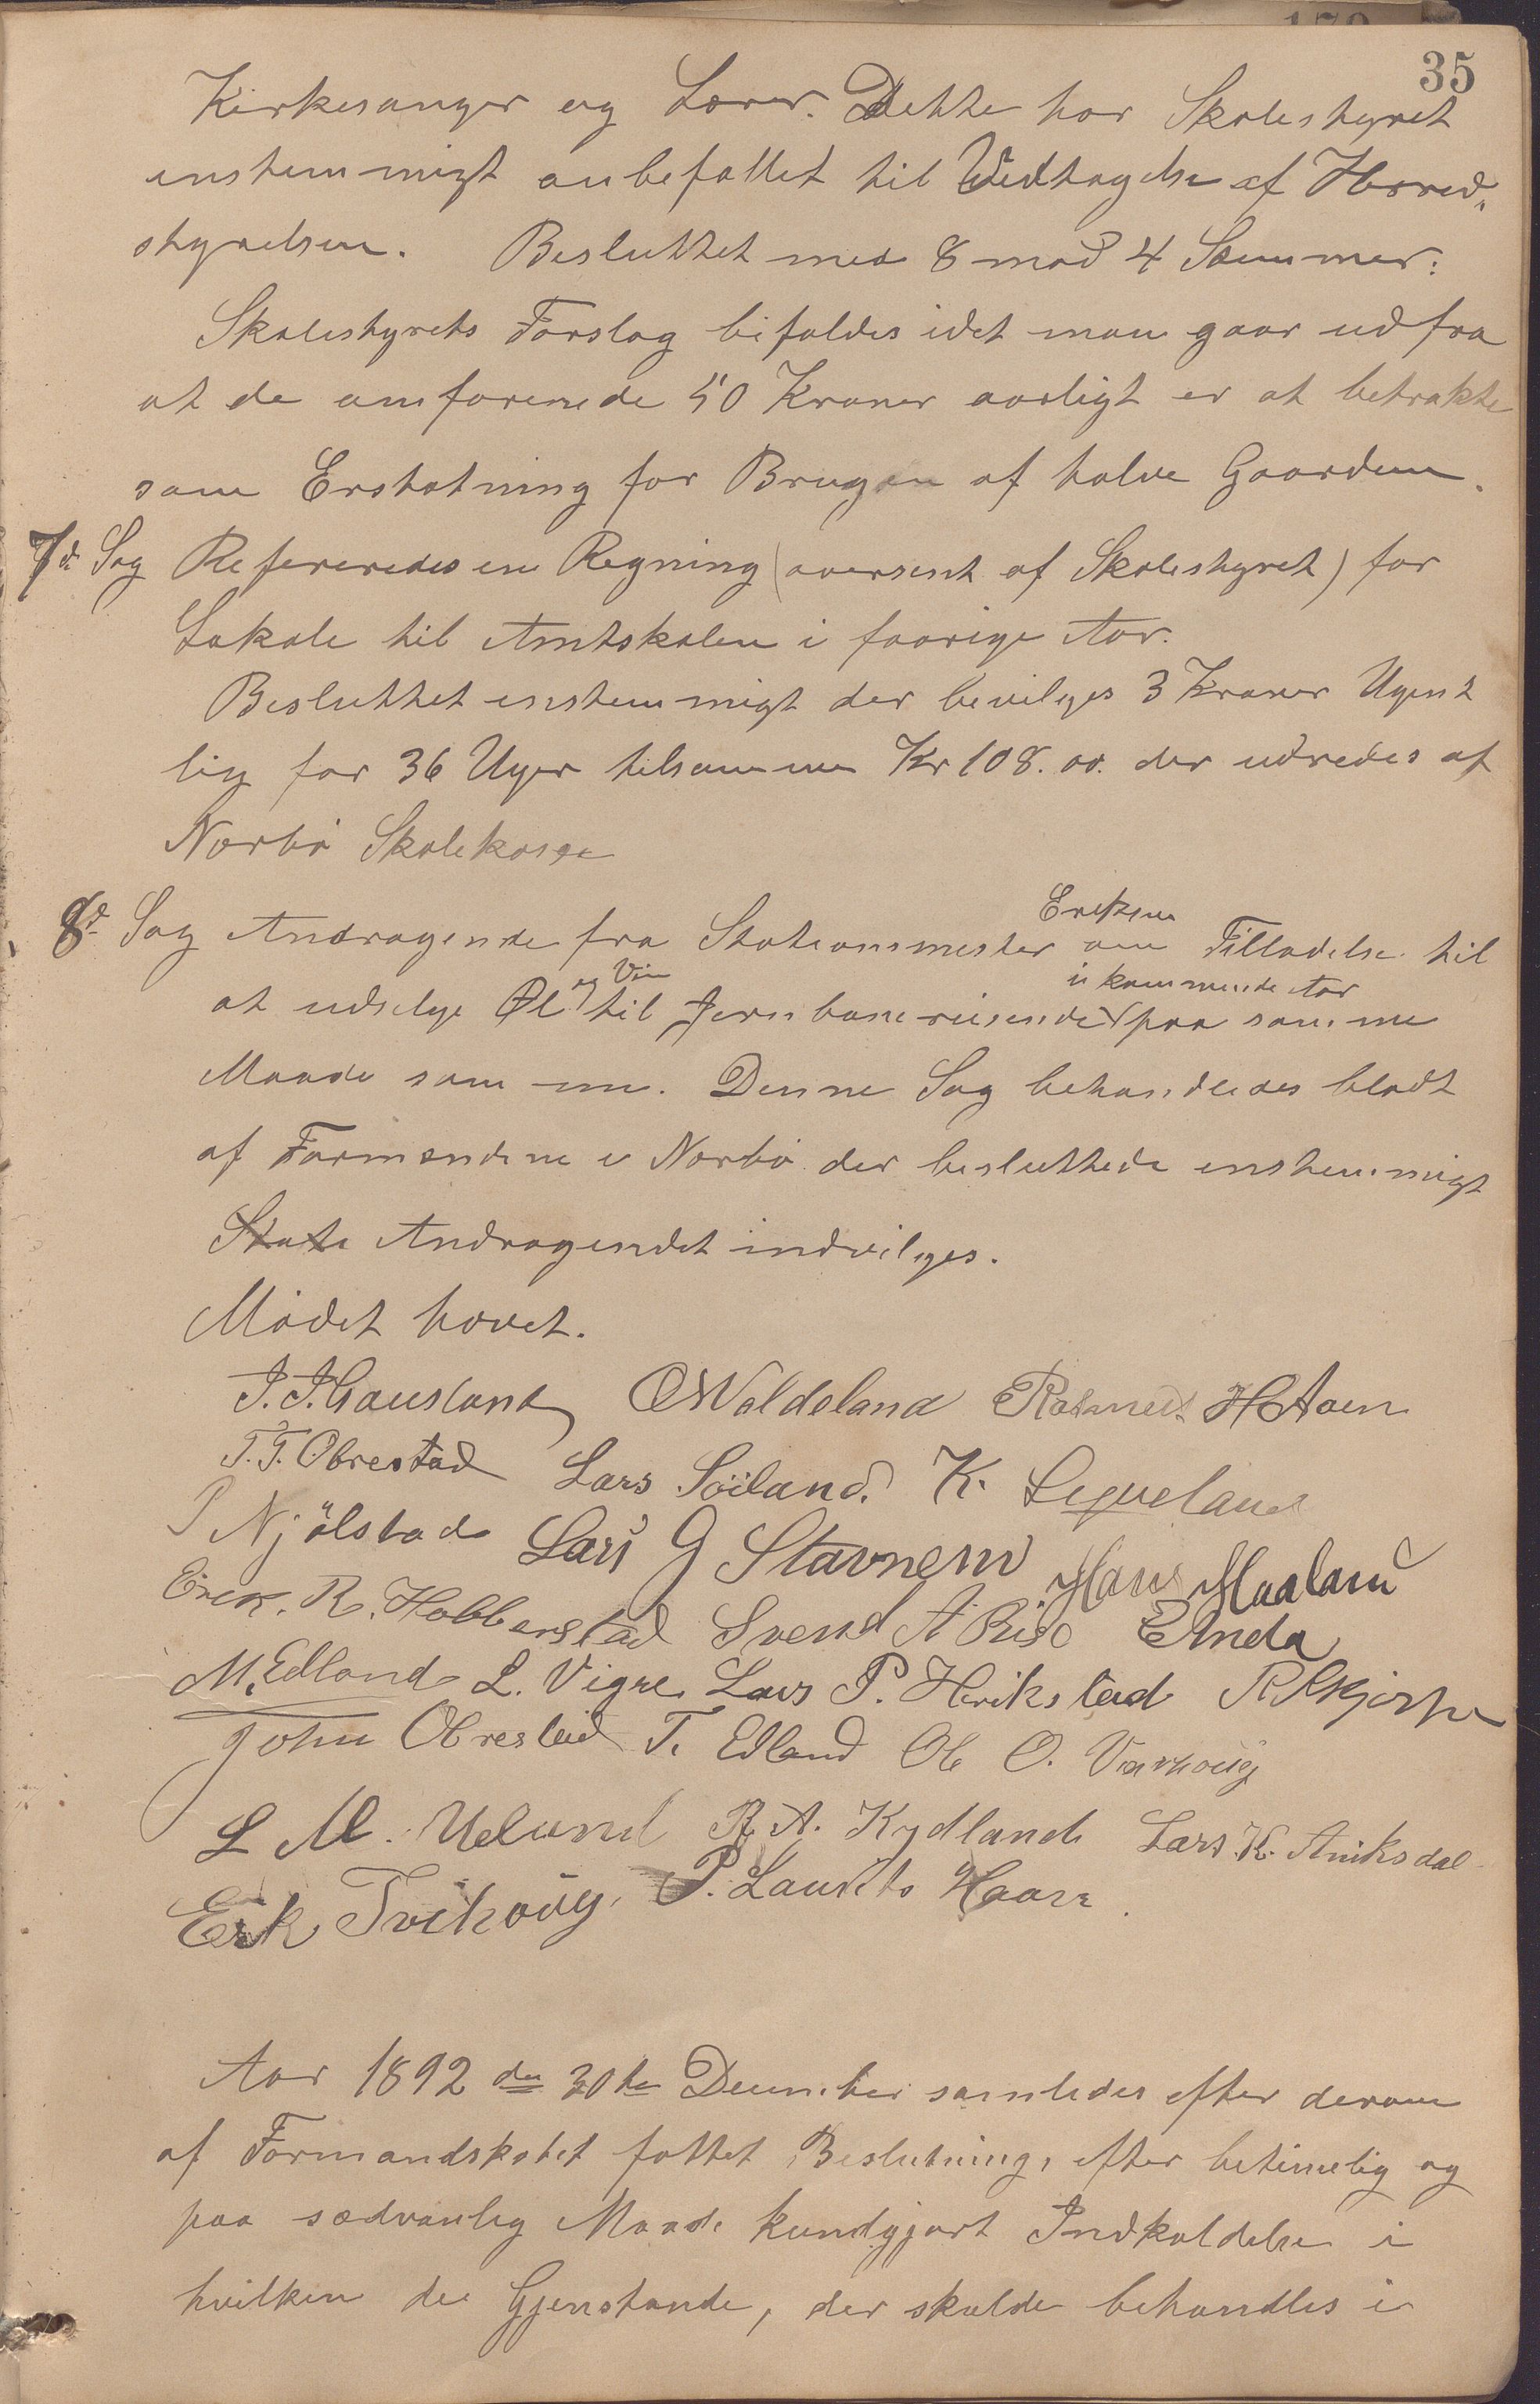 35
Kirkesanger og Lærer. Dette har Skolestyret
enstemmigt anbefallet til Vedtagelse af Herred„
styrelsen. Besluttet med 8 mod 4 Stemmer:
Skolestyrets Forslag bifaldes idet man gaar ud fra
at de omforenede 50 Kroner aarligt er at betrakte
som Erstatning for Brugen af halve Gaarden.
7de Sag Refereredes en Regning (oversent af Skolestyret) for
Lokale til Amtskolen i forrige Aar.
Besluttet enstemmigt der bevilges 3 Kroner Ugent
lig for 36 Uger tilsammen Kr 108.00. der udredes af
Nærbø Skolekasse
8de Sag Andragende fra Stationsmester Eriksen om Tilladelse til
at udselge Øl og Vin til Jernbanereisende i kommende Aar paa samme
Maade som nu. Denne Sag behandledes blodt
af Formændene i Nærbø der besluttede enstemmigt
State Andragendet indvilges.
Mødet hævet.
J. J. Gausland O Valdeland Rasmus H Aoen
T. T. Obrestad Lars Söiland. K. Ligueland
P Njölstad Lars G Stavnem Hans Maaland
Erik. R. Hobberstad Svend A Riso E Inda
M. Edland L. Vigre Lars P. Herikstad R Skjerpe
John Obrestad T. Edland Ole O. Varhoug
L M. Ueland R. A. Kydland Lars. K. Aniksdal
Erik Tvihoug. P. Laurits Haarr.
Aar 1892 den 30te December samledes efter derom
af Formandskabet fattet Beslutning, efter betimelig og
paa sædvanlig Maade kundgjort Indkaldelse i
hvilken de Gjenstande, der skulde behandles i